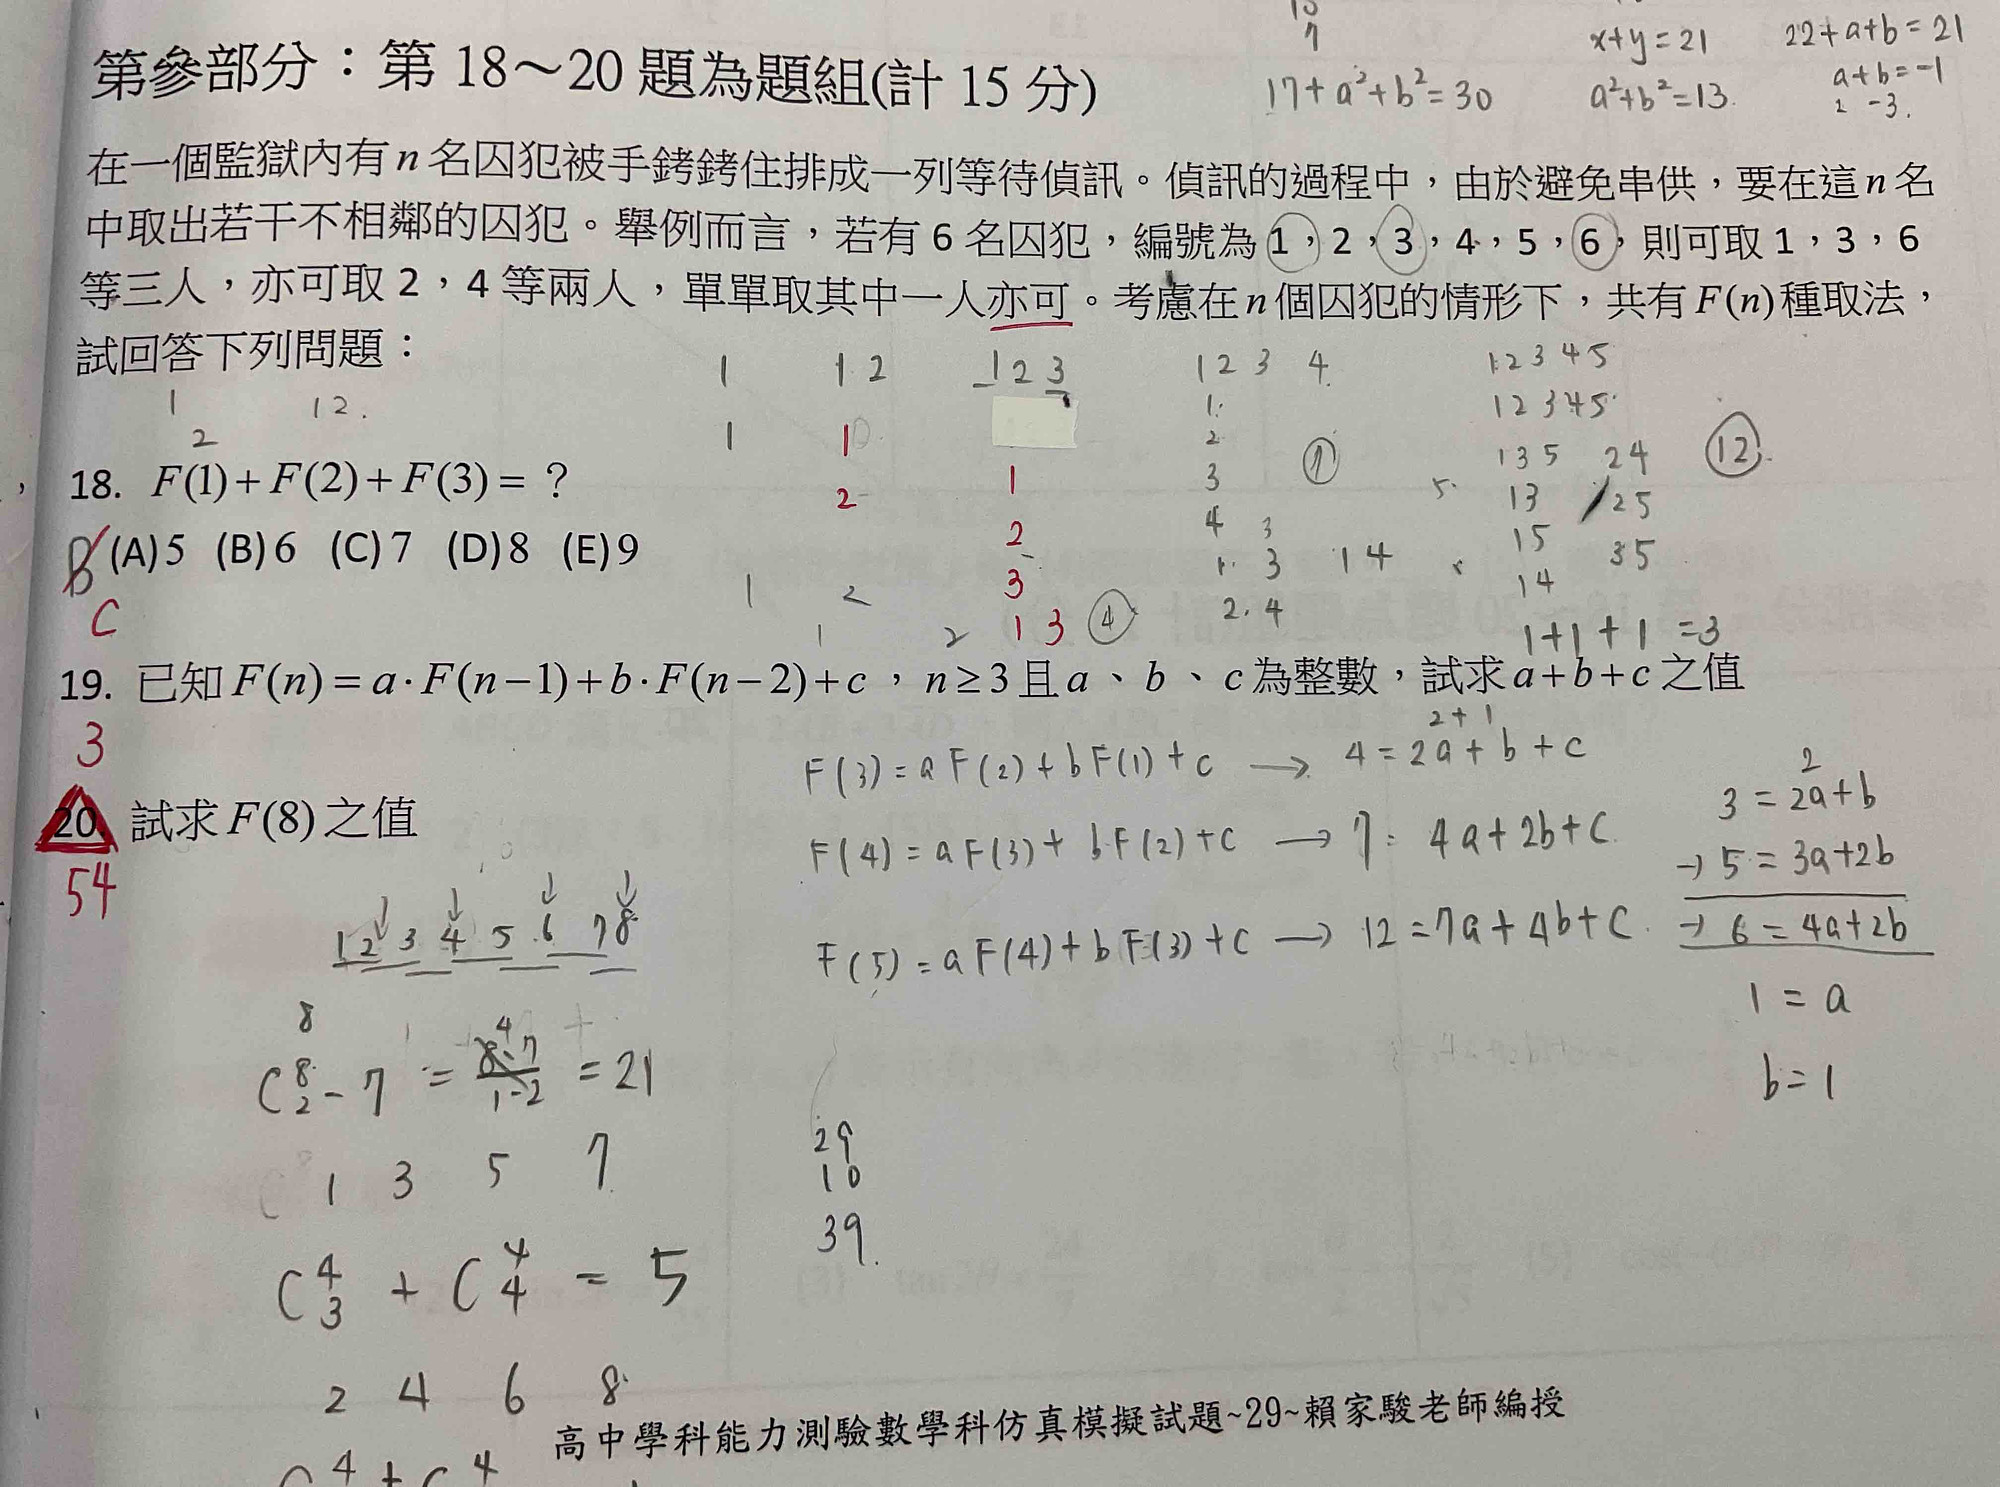 x+y=21
22+a+b=21
7
17+a²+b²=30
a²+b²=13
a+b=-1
2 -3.
第參部分：第 18～20 題為題組(計 15 分)
在一個監獄內有 n 名囚犯被手銬銬住排成一列等待偵訊。偵訊的過程中，由於避免串供，要在這 n 名
中取出若干不相鄰的囚犯。舉例而言，若有 6 名囚犯，編號為 1，2，3，4，5，6，則可取 1，3，6
等三人，亦可取 2，4 等兩人，單單取其中一人亦可。考慮在 n 個囚犯的情形下，共有 F(n) 種取法，
試回答下列問題：
1 1 2 1 2 3 1 2 3 4 1 2 3 4 5
1 1 2. 1 2 3 4 5
2 1 1 1 2
18. F(1)+F(2)+F(3)= ？
2 1 3 7 1 3 5 2 4 12
2 4 3 5. 1 3 2 5
B (A)5 (B)6 (C)7 (D)8 (E)9
3 1 3 1 4 1 5 3 5
1 2 2. 4 1 4
C 1 2 1 3 4 1+1+1=3
19. 已知 F(n)=a·F(n−1)+b·F(n−2)+c，n≥3 且 a、b、c 為整數，試求 a+b+c 之值
3
2+1
F(3)=aF(2)+bF(1)+c → 4=2a+b+c
2
3=2a+b
20. 試求 F(8) 之值
F(4)=aF(3)+bF(2)+c → 7=4a+2b+c
→ 5=3a+2b
54
1 2 3 4 5 6 7 8
F(5)=aF(4)+bF(3)+c → 12=7a+4b+c
→ 6=4a+2b
1=a
8
C⁸₂-7 = 8·7/1-2 = 21
4
b=1
1 3 5 7
29
10
39.
C⁴₃ + C⁴₄ = 5
2 4 6 8
高中學科能力測驗數學科仿真模擬試題~29~賴家駿老師編授
4 + 4